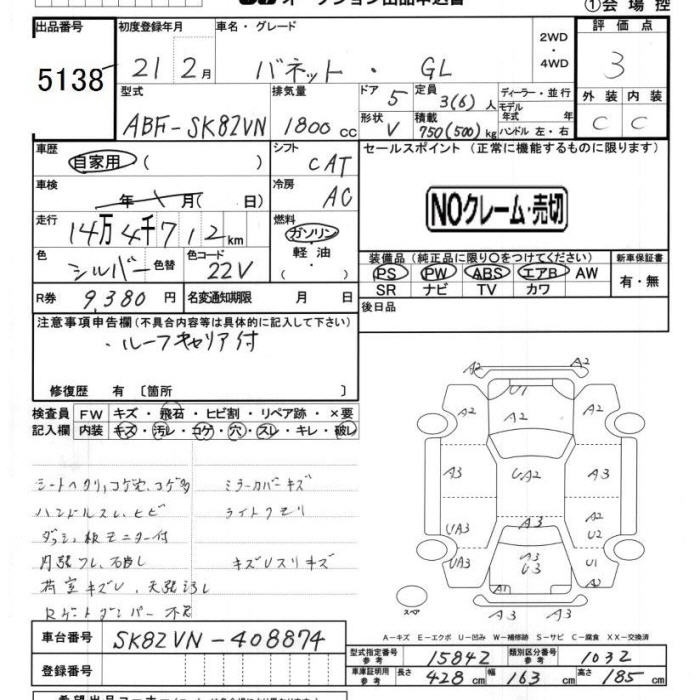 ①会場控
出品番号 初度登録年月 車名・グレード 2WD・4WD 評価点
5138 21 2月 バネット・GL 3
型式 排気量 ドア 5 定員 3(6)人 ディーラー・並行 外装 内装
ABF-SK82VN 1800cc 形状 V 積載 750(500)kg モデル年式 年 ハンドル 左・右 C C
車歴 自家用 ( ) シフト CAT セールスポイント (正常に機能するものに限ります)
車検 年 月( 日) 冷房 AC
NOクレーム・売切
走行 14万4千712km 燃料 ガソリン・軽油・( )
色 シルバー 色替 色コード 22V
装備品 (純正品に限り〇をつけてください) 新車保証書
PS PW ABS エアB AW 有・無
SR ナビ TV カワ
R券 9,380円 名変通知期限 月 日 後日品
注意事項申告欄 (不具合内容等は具体的に記入して下さい)
・ルーフキャリア付
修復歴 有 〔箇所 〕
検査員記入欄 FW キズ・飛石・ヒビ割・リペア跡・×要
内装 キズ・汚レ・コゲ・穴・スレ・キレ・破レ
ミラーカバーキズ
ハンドルスレ、ヒビ ライトクモリ
キズUスリキズ
荷室キズU、天張汚レ
A2 A2
U1
A2 A2 A2
A3 UA2 A3
A2
UA3 A3 U2
UA3 A3 U3 U1
A1
A3 A3
スペア
A-キズ E-エクボ U-凹み W-補修跡 S-サビ C-腐食 XX-交換済
車台番号 SK82VN-408874
型式指定番号 参考 15842 類別区分番号 参考 1032
登録番号
車庫証明用 参考 長さ 428cm 幅 163cm 高さ 185cm